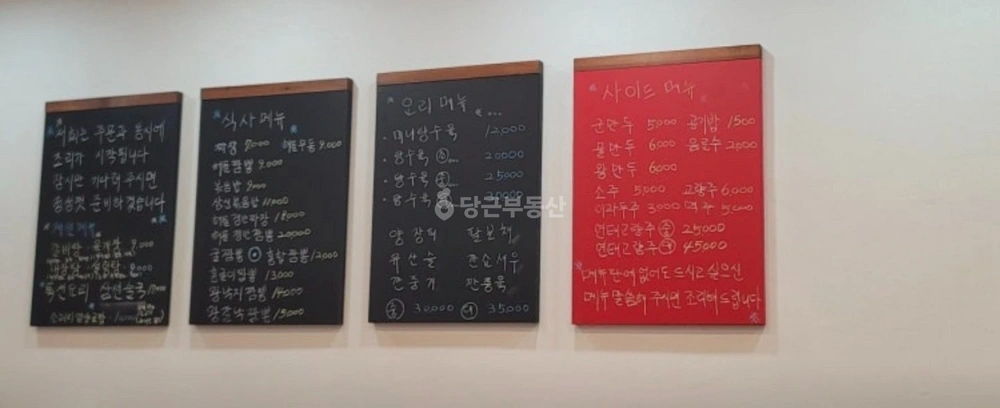 저희는 주문과 동시에
조리가 시작됩니다
잠시만 기다려 주시면
정성껏 준비하겠습니다
갈비탕 · 육개장 9,000
특선요리 삼선누룽
식사메뉴
짜장 7,000 해물우동 9,000
해물짬뽕 9,000
볶음밥 9,000
삼선볶음밥 11,000
해물쟁반짜장 18,000
해물쟁반짬뽕 20,000
굴짬뽕 홍합짬뽕 12,000
홍굴이짬뽕 13,000
왕낙지짬뽕 14,000
왕갈낙짬뽕 15,000
요리메뉴
· 미니탕수육 12,000
· 탕수육 소 20000
· 탕수육 중 25000
· 탕수육 대
양장피 팔보채
유산슬 깐쇼새우
깐풍기 깐풍육
중 30,000 대 35,000
사이드 메뉴
군만두 5,000 공기밥 1500
물만두 6000 음료수 2,000
왕만두 6000
소주 5,000 고량주 6000
이과두주 3000 맥주 5,000
연태고량주 소 25000
연태고량주 대 45000
메뉴판에 없어도 드시고 싶으신
메뉴 말씀해 주시면 조리해 드립니다
당근부동산